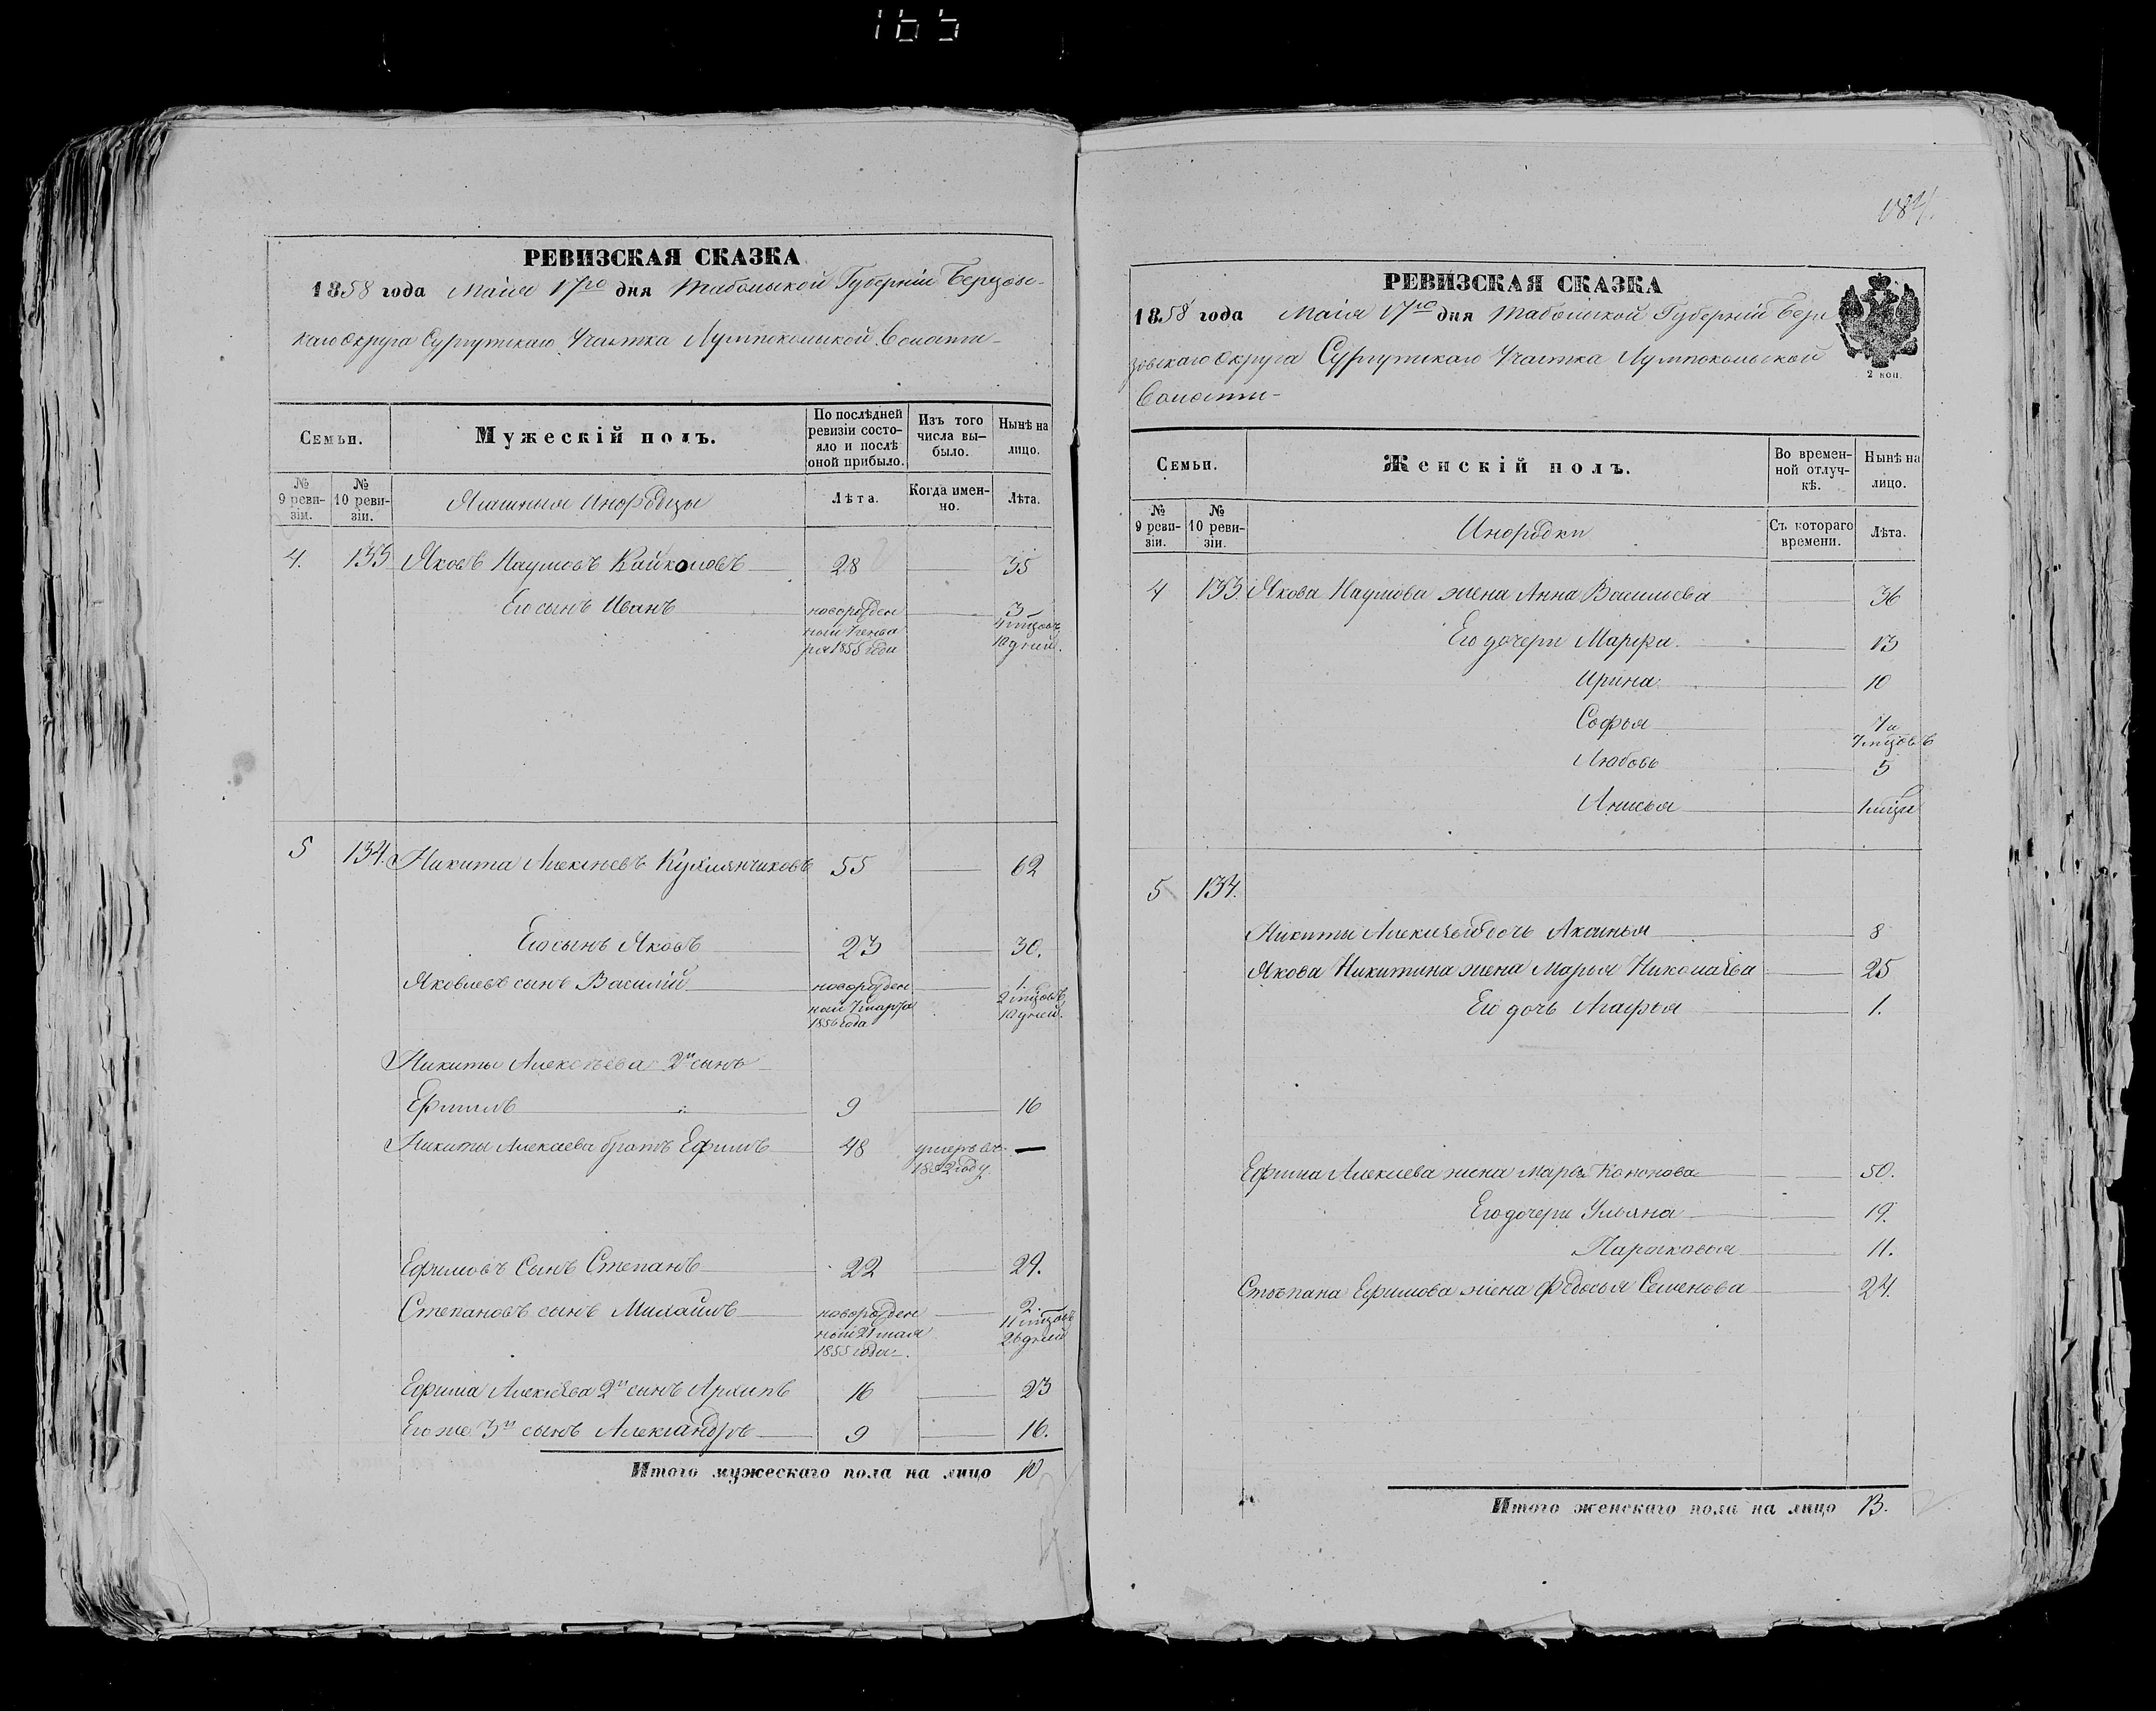 165
РЕВИЗСКАЯ СКАЗКА
1858 года Маія 17го дня Тобольской Губерніи Березов-
скаго Округа Сургутскаго Участка Лумпокольской Волости
Семьи.
Мужескій полъ.
По послѣдней ревизіи состояло и послѣ оной прибыло.
Изъ того числа вы-было.
Нынѣ на лицо.
№ 9 реви-зіи.
№ 10 реви-зіи.
Ясашныя Инородцы
Лѣта.
Когда имен-но.
Лѣта.
4. 133 Яковъ Наумовъ Кайколовъ 28 35
Его сынъ Иванъ новорожден 3
ный 7 генва 4 мцовъ
ря 1855 года 10 дней.
5 134. Никита Алексѣевъ 55 62
Его сынъ Яковъ 23 30.
Яковлевъ сынъ Василій новорожден 1.
ный 7 марта 2 мцовъ
1856 года 10 дней.
Никиты Алексѣева 2й сынъ
Ефимъ 9 16
Никиты Алексѣева братъ Ефимъ 48 умеръ въ —
1852 году.
Ефимовъ Сынъ Степанъ 22 29.
Степановъ сынъ Михайлъ новорожден 2.
ный 21 мая 11 мцовъ
1855 года. 26 дней
Ефима Алексѣева 2й сынъ Архипъ 16 23
Его же 3й сынъ Александръ 9 16.
Итого мужескаго пола на лицо 10
РЕВИЗСКАЯ СКАЗКА
1858 года Маія 17го дня Тобольской Губерніи Бере
зовскаго Округа Сургутскаго Участка Лумпокольской
Волости
2 коп.
Семьи.
Женскій полъ.
Во времен-ной отлуч-кѣ.
Нынѣ на лицо.
№ 9 реви-зіи.
№ 10 реви-зіи.
Инородки
Съ котораго времени.
Лѣта.
4 133 Якова Наумова жена Анна Васильева 36
Его дочери Марфа 13
Ирина 10
Софья 7 и
7 мцовъ
Любовь 5
Анисья 1 мцъ
5 134.
Никиты Алексѣева дочь Аксинья 8
Якова Никитина жена Марья Николаева 25
Его дочь Агафья 1.
Ефима Алексѣева жена Марья Кононова 50.
Его дочери Ульяна 19.
Парасковья 11.
Степана Ефимова жена Федосья Семенова 24.
Итого женскаго пола на лицо 13.